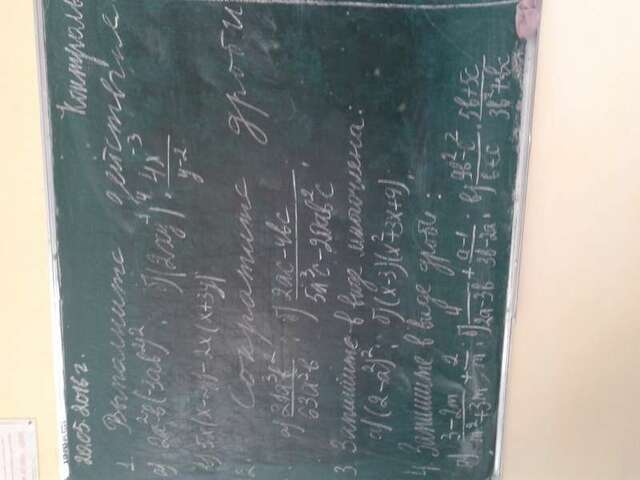 20.05.2016 г. Контроль
1. Выполните действия
а) 2a²b(-3ab²)²; б) (2xy⁻¹)⁴ · 4x⁻³/y⁻²
в) 5x(x-2y)-2x(x+3y)
2. Сократите дроби
а) 21a³b²/63a²b; б) 2ac-4bc/5a³c-20ab²c
3. Запишите в виде многочлена:
а) (2-a²)²; б) (x-3)(x²+3x+9)
4. Запишите в виде дроби:
а) 3-2m/m²+3m + 2/m; б) 4/2a-3b + a-1/3b-2a; в) 9b²-c²/b+c · 5b+5c/3b²+bc